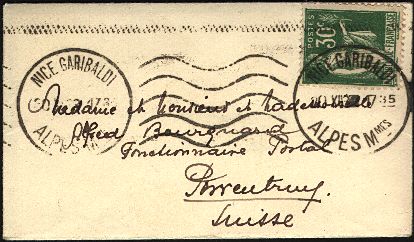 NICE GARIBALDI
ALPES Mmes
POSTES
30c
FRANÇAISE
NICE GARIBALDI
1735
ALPES MMES
Madame et Monsieur et Mademoiselle
Alfred
Fonctionnaire Postal
Porrentruy
Suisse